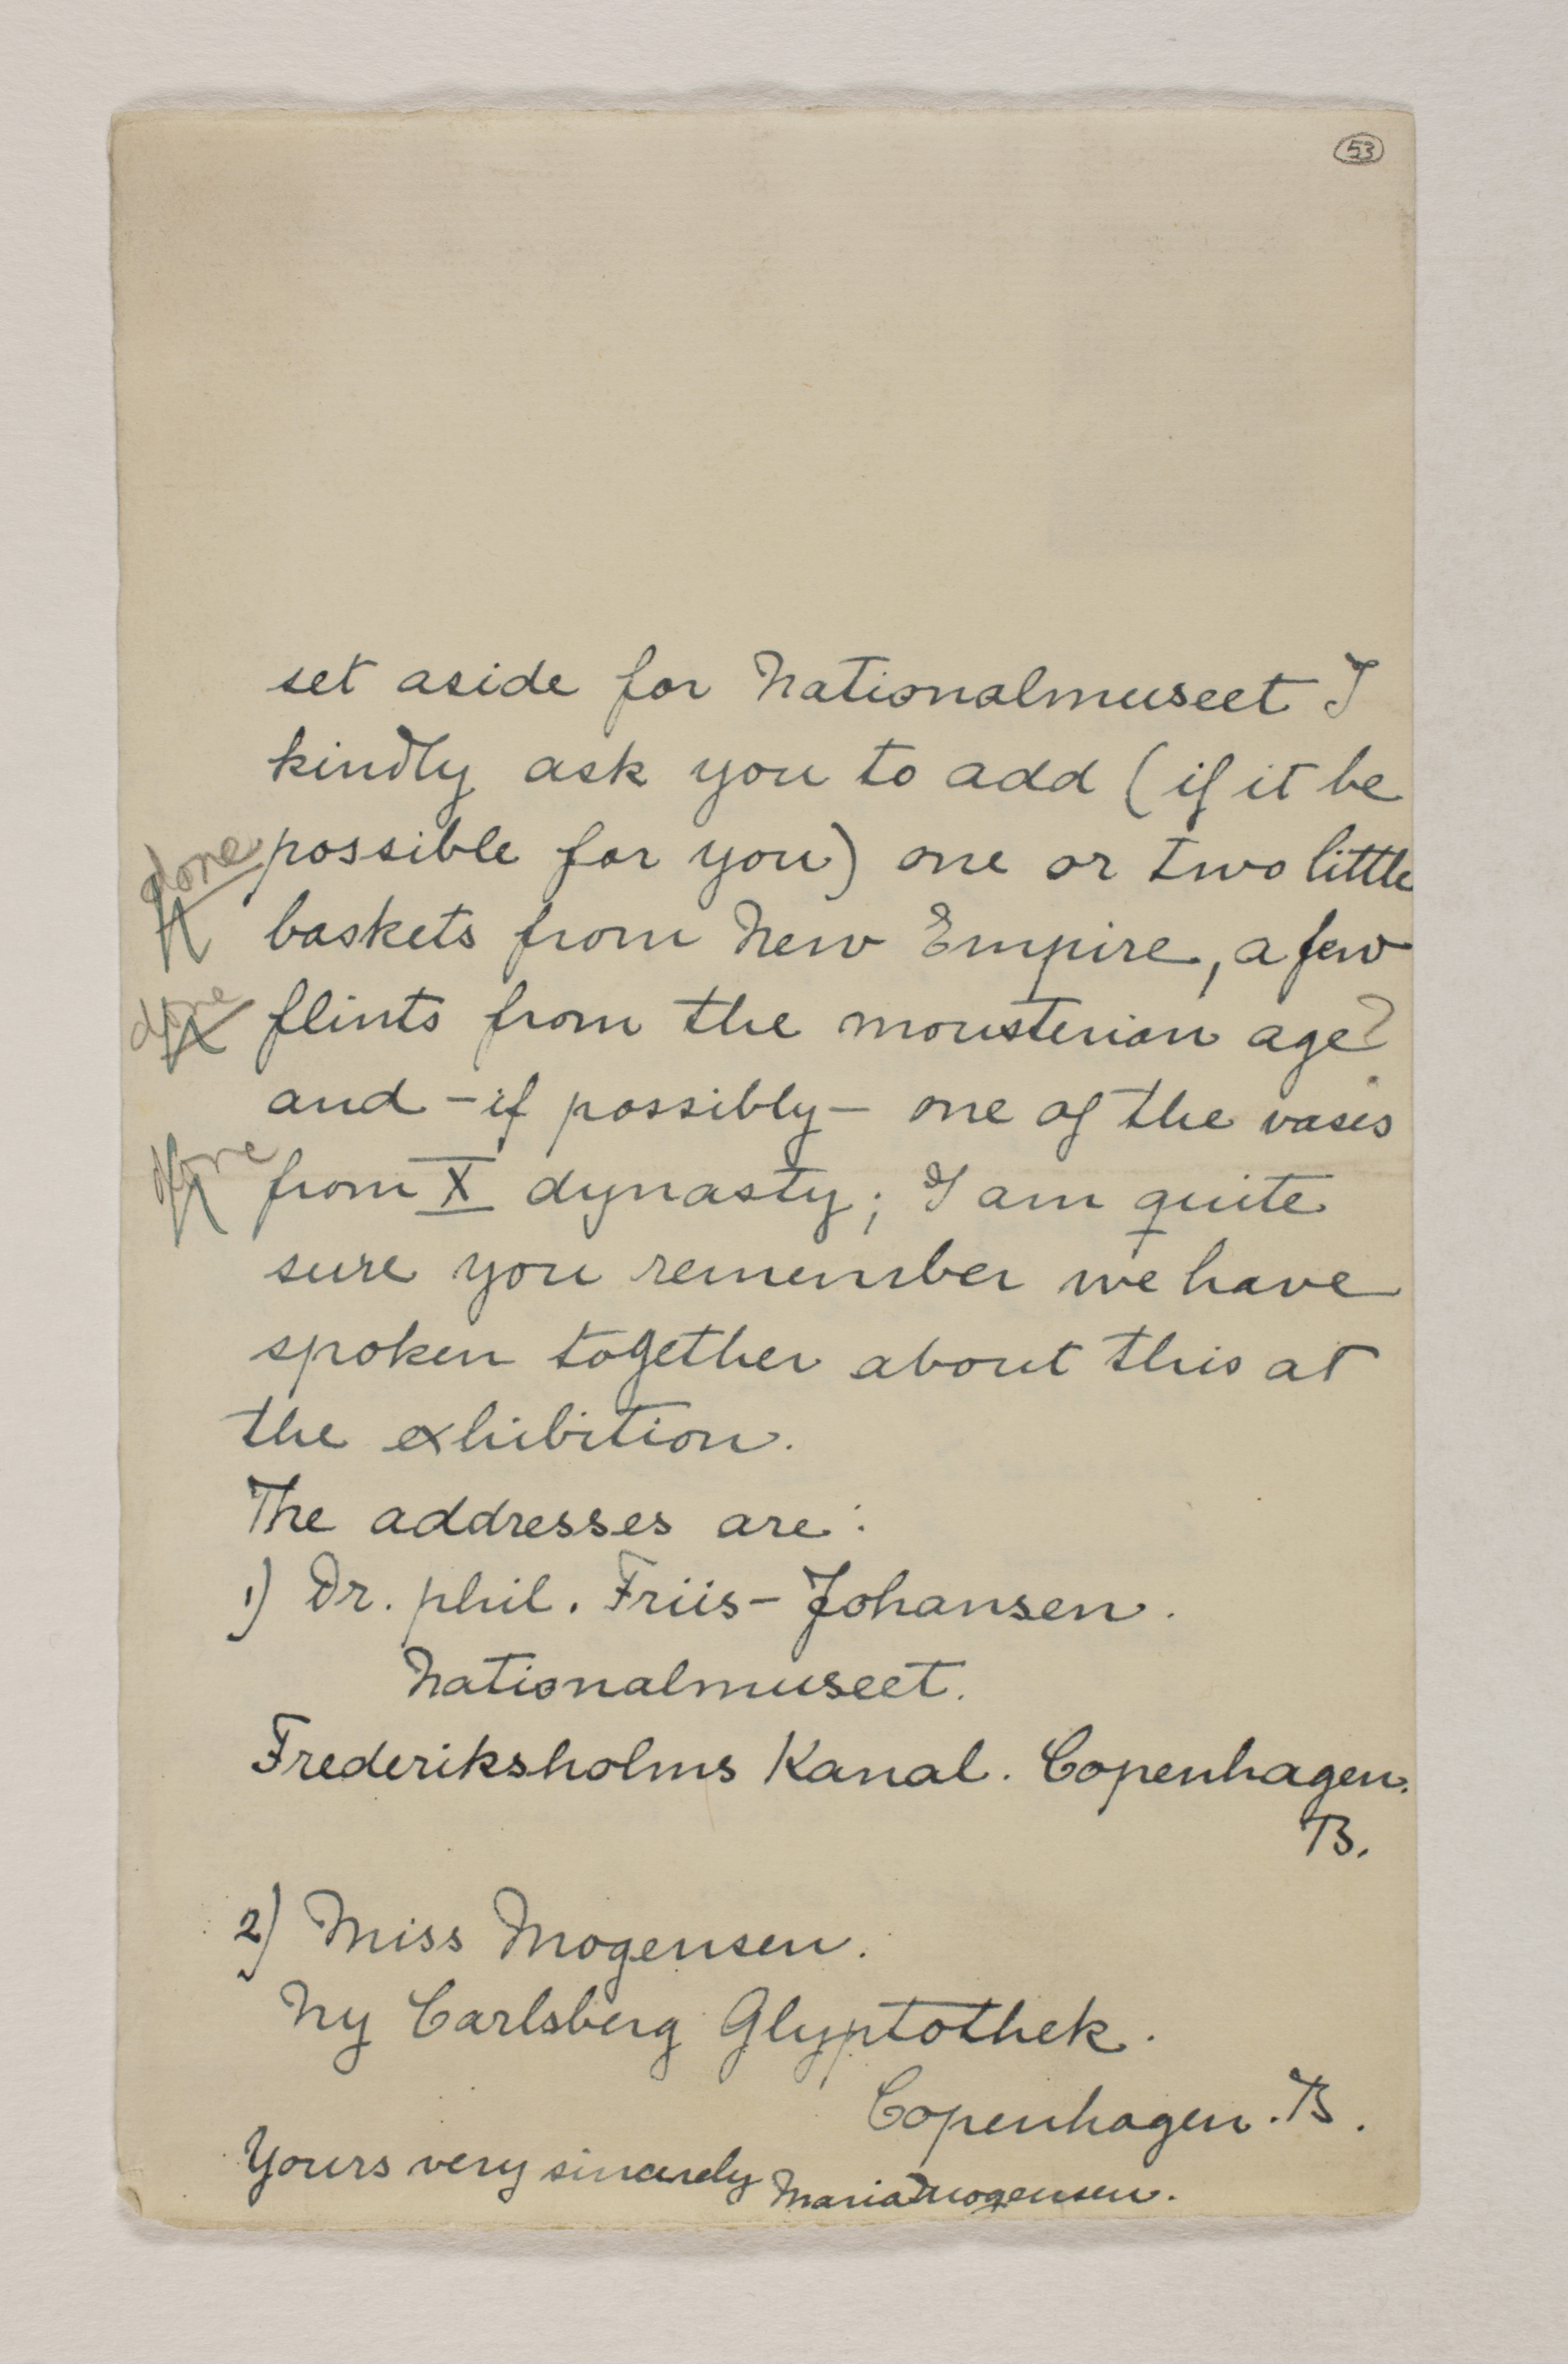 53
set aside for Nationalmuseet I
kindly ask you to add (if it be
done
possible for you) one or two little
baskets from New Empire, a few
done
flints from the mousterian age?
and - if possibly - one of the vases
done
from X dynasty; I am quite
sure you remember we have
spoken together about this at
the exhibition.
The addresses are:
1) Dr. phil. Friis-Johansen.
Nationalmuseet.
Frederiksholms Kanal. Copenhagen.
B.
2) Miss Mogensen.
Ny Carlsberg Glyptothek.
Copenhagen. B.
Yours very sincerely Maria Mogensen.